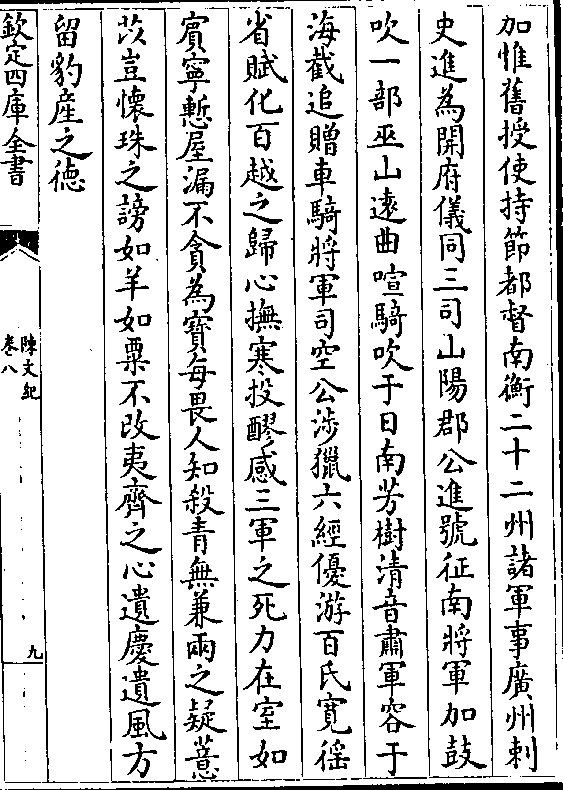 加惟舊授使持節都督南衡二十二州諸軍事廣州刺
史進為開府儀同三司山陽郡公進號征南將軍加鼓
吹一部巫山遠曲喧騎吹于日南芳樹清音肅軍容于
海截追贈車騎將軍司空公涉獵六經優游百氏寛徭
省賦化百越之歸心撫寒投醪感三軍之死力在室如
賓寧慙屋漏不貪為寶每畏人知殺青無兼兩之疑薏
苡豈懷珠之謗如羊如粟不改夷齊之心遺慶遺風方
留豹産之徳
欽定四庫全書
陳文紀
卷八
九